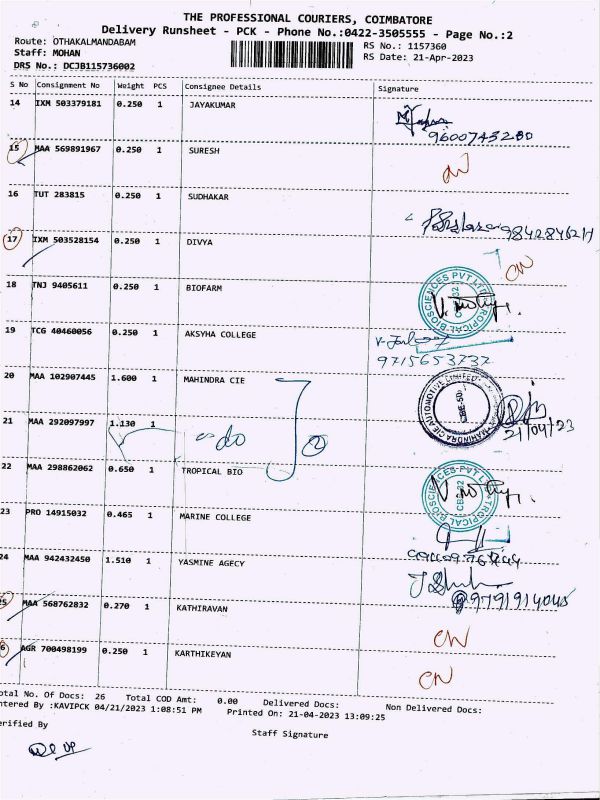 THE PROFESSIONAL COURIERS, COIMBATORE
Delivery Runsheet - PCK - Phone No.:0422-3505555 - Page No.:2
Route: OTHAKALMANDABAM
RS No.: 1157360
Staff: MOHAN
RS Date: 21-Apr-2023
DRS No.: DCJB115736002
S No Consignment No Weight PCS Consignee Details Signature
14 IXM 503379181 0.250 1 JAYAKUMAR
9600743280
15 MAA 569891967 0.250 1 SURESH
CN
16 TUT 283815 0.250 1 SUDHAKAR
17 IXM 503528154 0.250 1 DIVYA
CN
18 TNJ 9405611 0.250 1 BIOFARM
TROPICAL BIOSCIENCES PVT LTD
19 TCG 40460056 0.250 1 AKSYHA COLLEGE
9715653737
20 MAA 102907445 1.600 1 MAHINDRA CIE
MAHINDRA CIE AUTOMOTIVE LIMITED
21/04/23
21 MAA 292097997 1.130 1
do
22 MAA 298862062 0.650 1 TROPICAL BIO
TROPICAL BIOSCIENCES PVT LTD
23 PRO 14915032 0.465 1 MARINE COLLEGE
24 MAA 942432450 1.510 1 YASMINE AGECY
9791914045
25 MAA 568762832 0.270 1 KATHIRAVAN
CN
6 AGR 700498199 0.250 1 KARTHIKEYAN
CN
otal No. Of Docs: 26 Total COD Amt: 0.00 Delivered Docs: Non Delivered Docs:
ntered By :KAVIPCK 04/21/2023 1:08:51 PM Printed On: 21-04-2023 13:09:25
erified By
Staff Signature